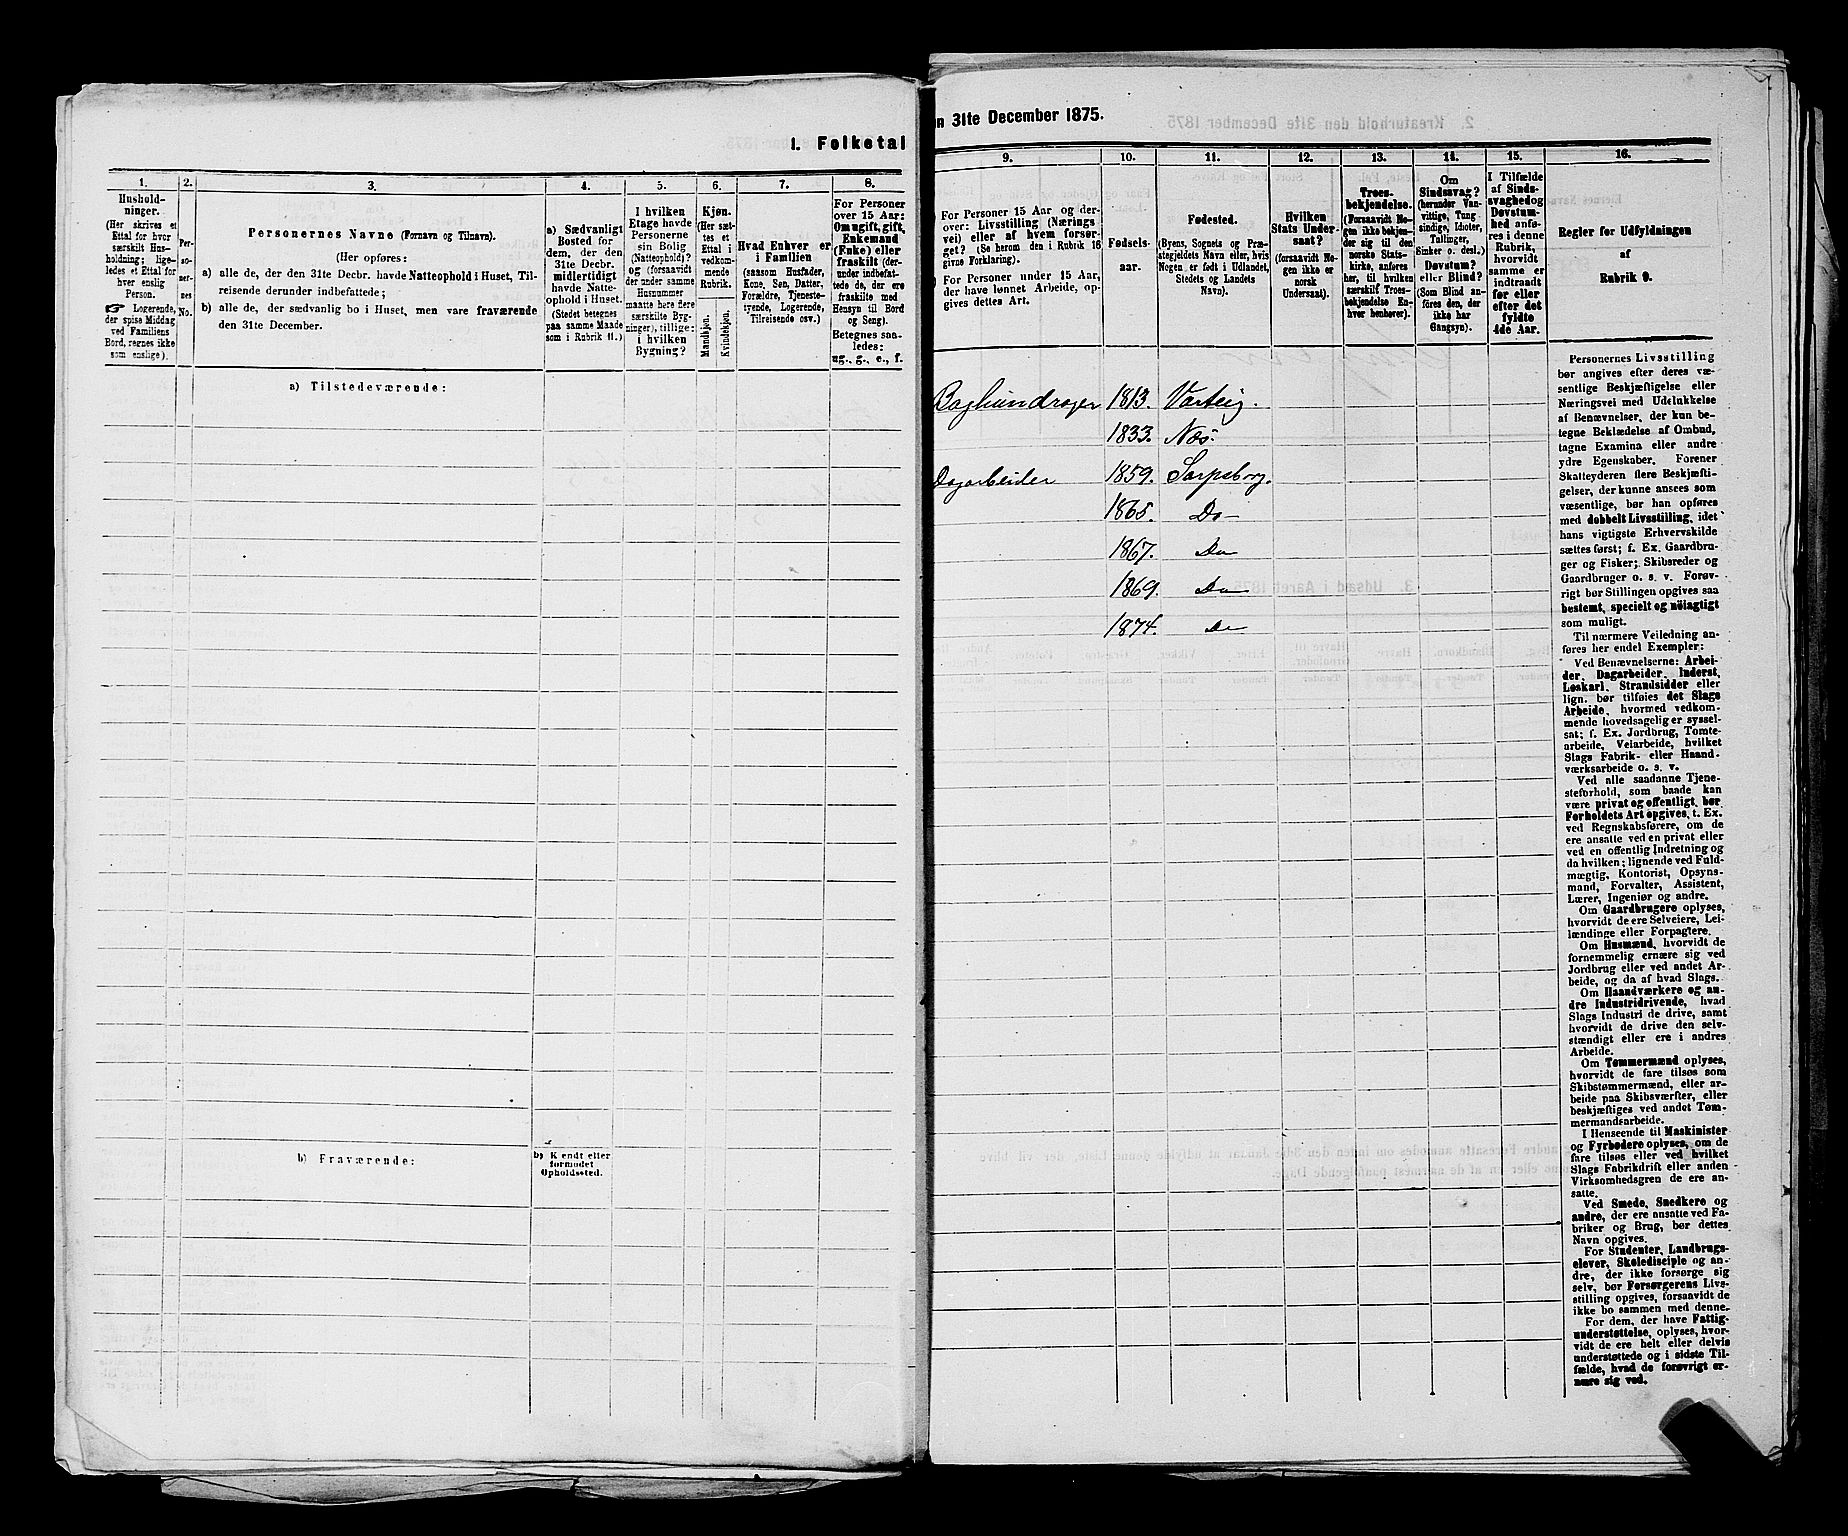 1. Folketal
1.
2.
3.
4.
5.
6.
7.
8.
Hushold-
ninger.
(Her skrives et
Ettal for hver
særskilt Hus-
holdning; lige-
ledes et Ettal for
hver enslig
Person.
☞ Logerende,
der spise Middag
ved Familiens
Bord, regnes ikke
som enslige).
Per-
so-
ner-
nes
No.
Personernes Navne (Fornavn og Tilnavn).
(Her opføres:
a) alle de, der den 31te Decbr. havde Natteophold i Huset, Til-
reisende derunder indbefattede;
b) alle de, der sædvanlig bo i Huset, men vare fraværende
den 31te December.
a) Sædvanligt
Bosted for
dem, der den
31te Decbr.
midlertidigt
havde Natte-
ophold i Huset.
(Stedet betegnes
paa samme Maade
som i Rubrik 11.)
I hvilken
Etage havde
Personerne
sin Bolig
(Natteophold)?
og (forsaavidt
der under samme
Husnummer
maatte høre flere
særskilte Byg-
ninger), tillige:
i hvilken
Bygning?
Kjøn.
(Her sæt-
tes et
Ettal i
vedkom-
mende
Rubrik.
Mandkjøn.
Kvindekjøn.
Hvad Enhver er
i Familien
(saasom Husfader,
Kone, Søn, Datter,
Forældre, Tjeneste-
tyende, Logerende,
Tilreisende osv.)
For Personer
over 15 Aar:
Om ugift, gift,
Enkemand
(Enke) eller
fraskilt (der-
under indbefat-
tede de, der ere
fraskilte med
Hensyn til Bord
og Seng).
Betegnes saa-
ledes:
ug., g., e., f.
a) Tilstedeværende:
b) Fraværende:
b) Kjendt eller
formodet
Opholdssted.
31te December 1875.
9.
10.
11.
12.
13.
14.
15.
16.
For Personer 15 Aar og der-
over: Livsstilling (Nærings
vei) eller af hvem forsør-
get? (Se herom den i Rubrik 16
givne Forklaring).
For Personer under 15 Aar,
der have lønnet Arbeide, op-
gives dettes Art.
Fødsels-
aar.
Fødested.
(Byens, Sognets og Præ-
stegjeldets Navn eller, hvis
Nogen er født i Udlandet,
Stedets og Landets
Navn).
Hvilken
Stats Under-
saat?
(forsaavidt No-
gen ikke er
norsk
Undersaat).
Troes-
bekjendelse.
(Forsaavidt No-
gen ikke bekjen-
der sig til den
norske Stats-
kirke, anføres
her, til hvilken
særskilt Troes-
bekjendelse En-
hver henhører).
Om
Sindssvag?
(herunder Van-
vittige, Tung-
sindige, Idioter,
Tullinger,
Sinker o. desl.)
Døvstum?
eller Blind?
(Som Blind an-
føres den, der
ikke har
Gangsyn).
I Tilfælde
af Sinds-
svaghed og
Døvstum-
hed anfø-
res i denne
Rubrik,
hvorvidt
samme er
indtraadt
før eller
efter det
fyldte
4de Aar.
Regler for Udfyldningen
af
Rubrik 9.
1813. Varteig.
1833. Næs.
Dagarbeider 1859. Sarpsborg.
1865. Do
1867. Do
1869. Do
1874. Do
Personernes Livsstilling
bør angives efter deres væ-
sentlige Beskjæftigelse eller
Næringsvei med Udelukkelse
af Benævnelser, der kun be-
tegne Beklædelse af Ombud,
tagne Examina eller andre
ydre Egenskaber. Forener
Skatteyderen flere Beskjæfti-
gelser, der kunne ansees som
væsentlige, bør han opføres
med dobbelt Livsstilling, idet
hans vigtigste Erhvervskilde
sættes først; f. Ex. Gaardbru-
ger og Fisker; Skibsreder og
Gaardbruger o. s. v. Forøv-
rigt bør Stillingen opgives saa
bestemt, specielt og nöiagtigt
som muligt.
Til nærmere Veiledning an-
føres her endel Exempler:
Ved Benævnelserne: Arbei-
der, Dagarbeider, Inderst,
Løskarl, Strandsidder eller
lign. bør tilføies det Slags
Arbeide, hvormed vedkom-
mende hovedsagelig er syssel-
sat; f. Ex. Jordbrug, Tomte-
arbeide, Veiarbeide, hvilket
Slags Fabrik- eller Haand-
værksarbeide o. s. v.
Ved alle saadanne Tjene-
steforhold, som baade kan
være privat og offentligt, bør
Forholdets Art opgives, t. Ex.
ved Regnskabsførere, om de
ere ansatte ved en privat eller
ved en offentlig Indretning og
da hvilken; lignende ved Fuld-
mægtig, Kontorist, Opsyns-
mand, Forvalter, Assistent,
Lærer, Ingeniør og andre.
Om Gaardbrugere oplyses,
hvorvidt de ere Selveiere, Lei-
lændinge eller Forpagtere.
Om Husmænd, hvorvidt de
fornemmelig ernære sig ved
Jordbrug eller ved andet Ar-
beide, og da af hvad Slags.
Om Haandværkere og an-
dre Industridrivende, hvad
Slags Industri de drive, samt
hvorvidt de drive den selv-
stændigt eller ere i andres
Arbeide.
Om Tømmermænd oplyses,
hvorvidt de fare tilsøs som
Skibstømmermænd, eller ar-
beide paa Skibsværfter, eller
beskjæftiges ved andet Tøm-
mermandsarbeide.
I Henseende til Maskinister
og Fyrbødere oplyses, om de
fare tilsøs eller ved hvilket
Slags Fabrikdrift eller anden
Virksomhedsgren de ere an-
satte.
Ved Smede, Snedkere og
andre, der ere ansatte ved Fa-
briker og Brug, bør dettes
Navn opgives.
For Studenter, Landbrugs-
elever, Skoledisciple og an-
dre, der ikke forsørge sig
selv, bør Forsørgerens Livs-
stilling opgives, forsaavidt de
ikke bo sammen med denne.
For dem, der have Fattig-
understøttelse, oplyses, hvor-
vidt de ere helt eller delvis
understøttede og i sidste Til-
fælde, hvad de forøvrigt er-
nære sig ved.